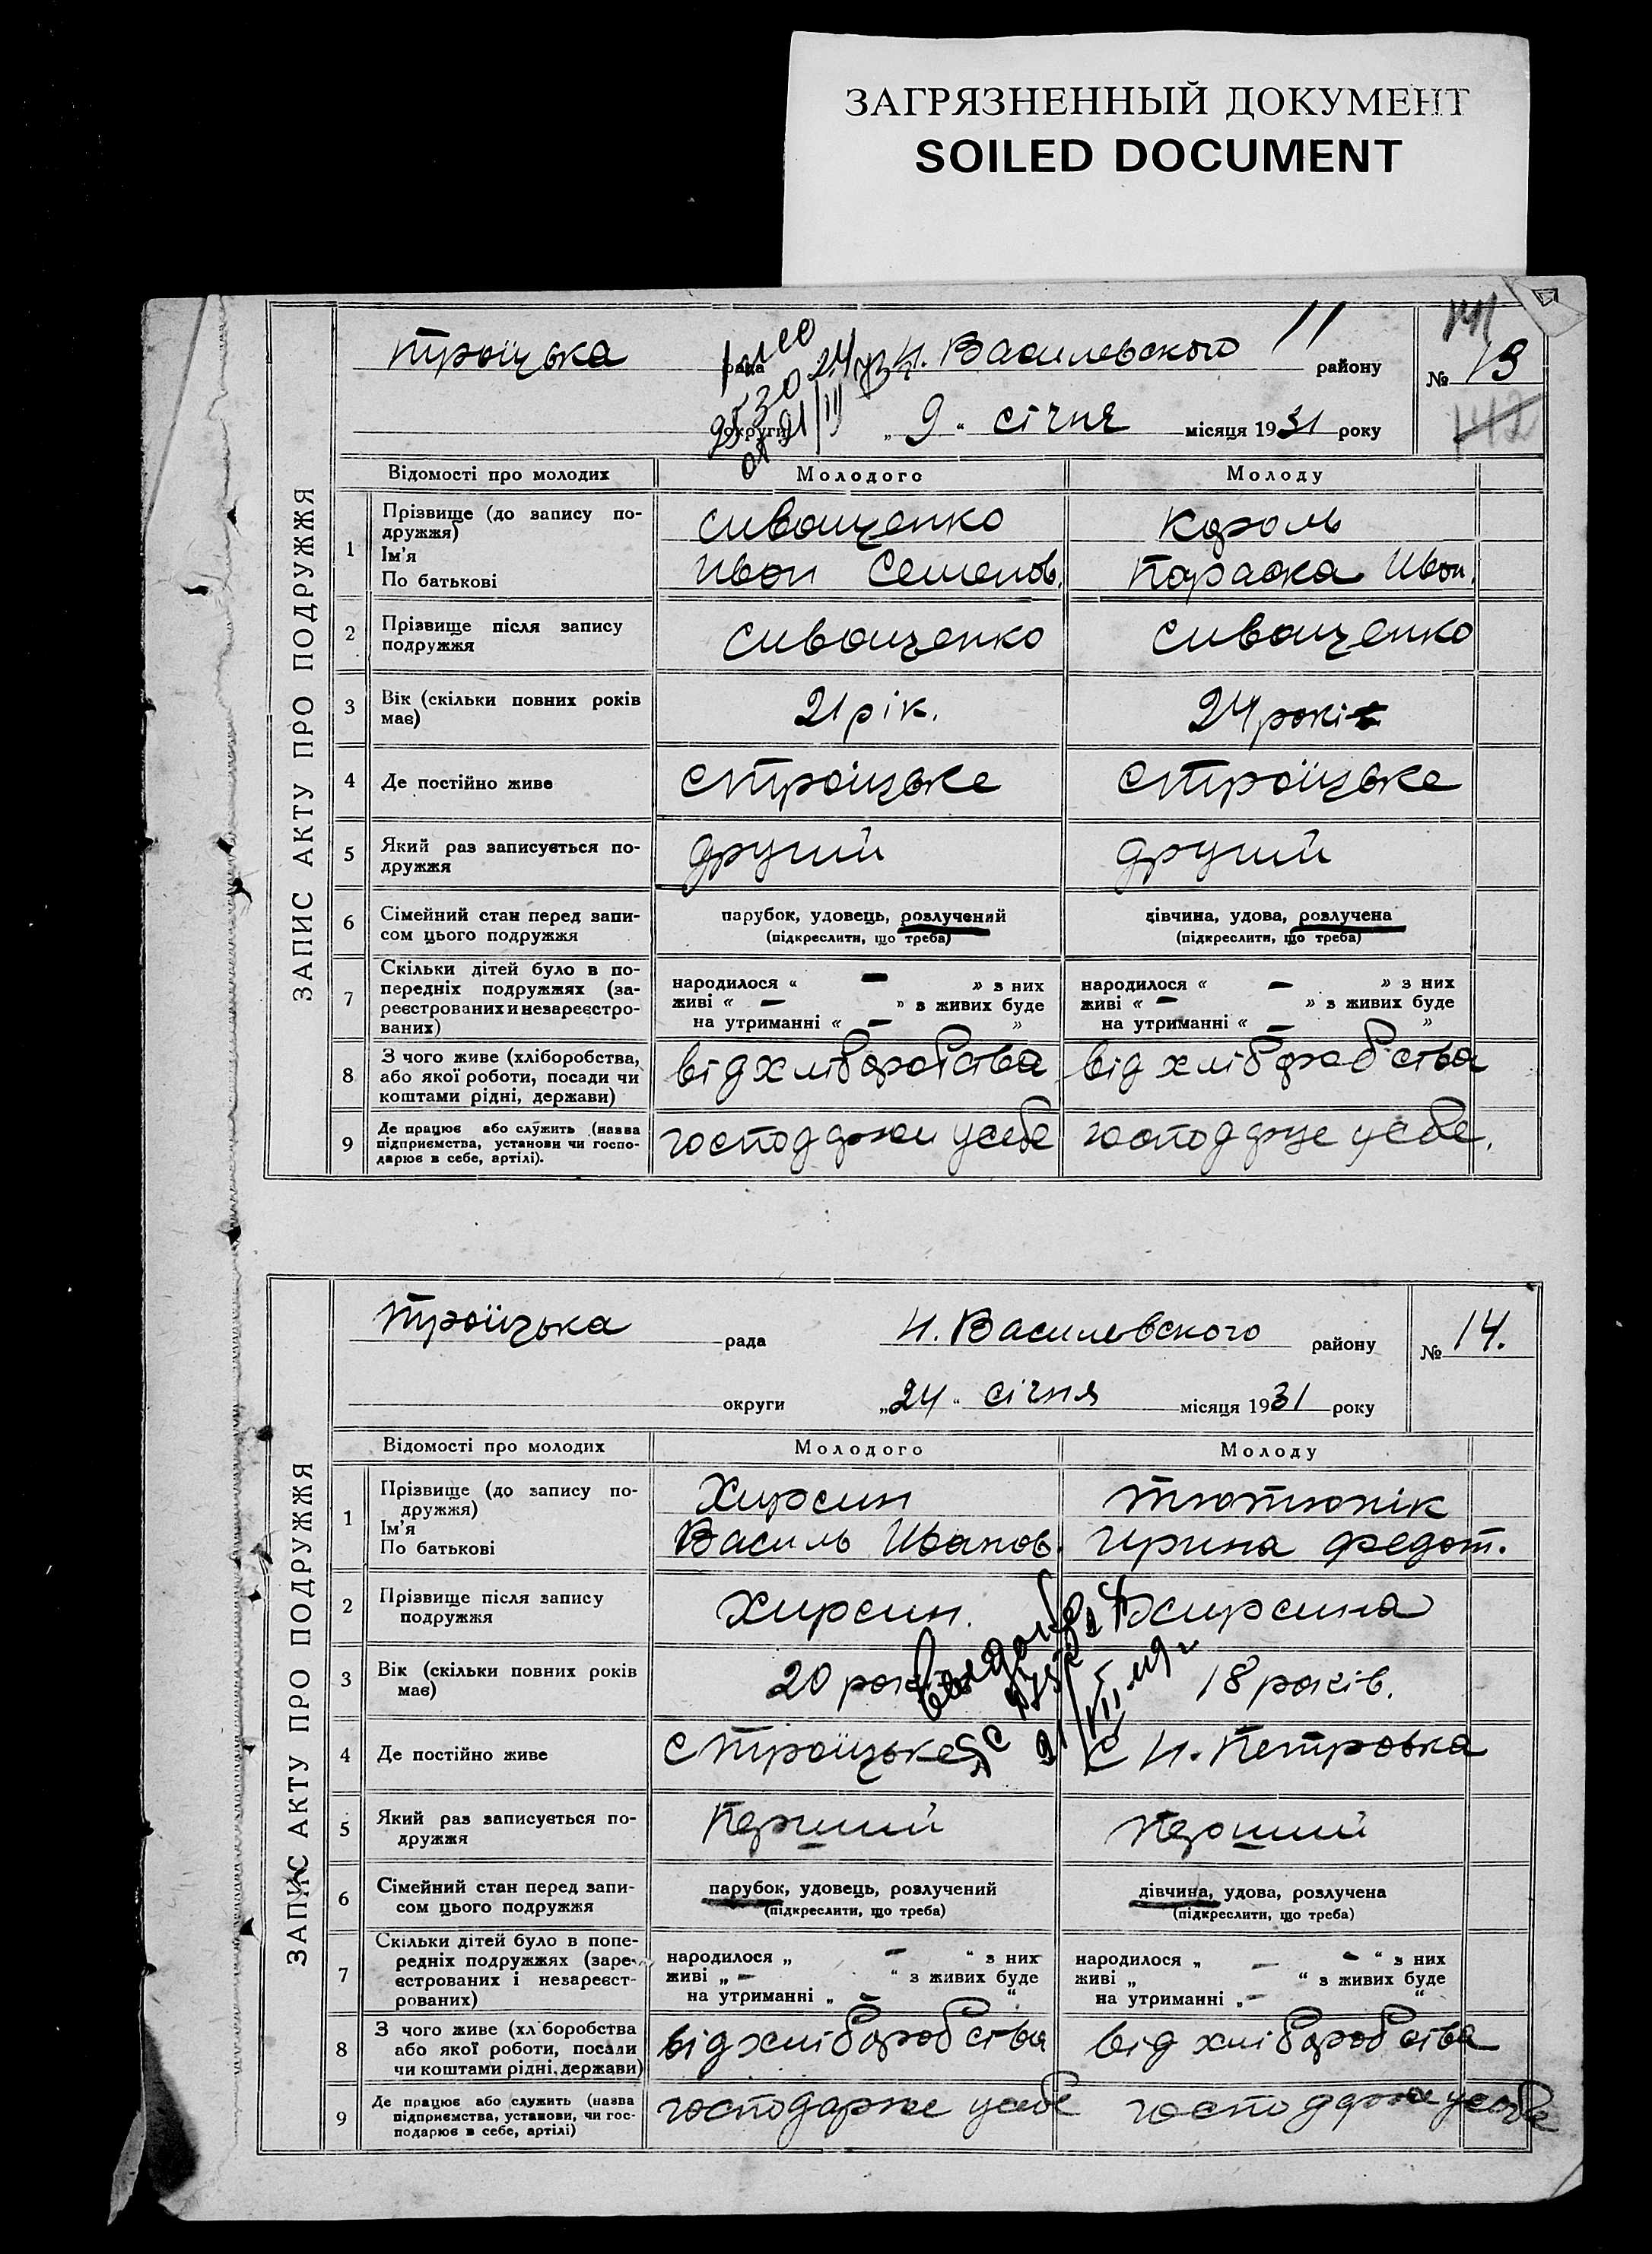 ЗАГРЯЗНЕННЫЙ ДОКУМЕНТ
SOILED DOCUMENT
ЗАПИС АКТУ ПРО ПОДРУЖЖЯ
Троїцька рада Н. Василевського району № 13
141
142
округи „ 9 “ січня місяця 1931 року
Відомості про молодих Молодого Молоду
1 Прізвище (до запису по- Сиващенко Король
дружжя)
Ім’я Иван Семенов. Параска Иван.
По батькові
2 Прізвище після запису Сиващенко Сиващенко
подружжя
3 Вік (скільки повних років 21 рік. 24 роки
має)
4 Де постійно живе с Троїцьке с Троїцьке
5 Який раз записується по- другий другий
дружжя
6 Сімейний стан перед запи- парубок, удовець, розлучений дівчина, удова, розлучена
сом цього подружжя (підкреслити, що треба) (підкреслити, що треба)
7 Скільки дітей було в по- народилося « — » з них народилося « — » з них
передніх подружжях (за- живі « — » з живих буде живі « — » з живих буде
реєстрованих и незареєстро- на утриманні « — » на утриманні « — »
ваних)
8 З чого живе (хліборобства, від хліборобства від хліборобства
або якої роботи, посади чи
коштами рідні, держави)
9 Де працює або служить (назва усебе усебе.
підприємства, установи чи госпо-
дарює в себе, артілі).
ЗАПИС АКТУ ПРО ПОДРУЖЖЯ
Троїцька рада Н. Василевського району № 14.
округи „ 24 “ січня місяця 1931 року
Відомості про молодих Молодого Молоду
1 Прізвище (до запису по- Хирсин Тютюнік
дружжя)
Ім’я Василь Иванов. Ирина Федот.
По батькові
2 Прізвище після запису Хирсин. Хирсина
подружжя
3 Вік (скільки повних років 20 років 18 років.
має)
4 Де постійно живе с Троїцьке с Н. Петровка
5 Який раз записується по- Перший Перший
дружжя
6 Сімейний стан перед запи- парубок, удовець, розлучений дівчина, удова, розлучена
сом цього подружжя (підкреслити, що треба) (підкреслити, що треба)
7 Скільки дітей було в попе- народилося „ — “ з них народилося „ — “ з них
редніх подружжях (заре- живі „ — “ з живих буде живі „ “ з живих буде
єстрованих і незареєст- на утриманні „ — “ на утриманні „ — “
рованих)
8 З чого живе (хліборобства від хліборобства від хліборобства
або якої роботи, посади
чи коштами рідні, держави)
9 Де працює або служить (назва господарює усебе усебе
підприємства, установи, чи гос-
подарює в себе, артілі)